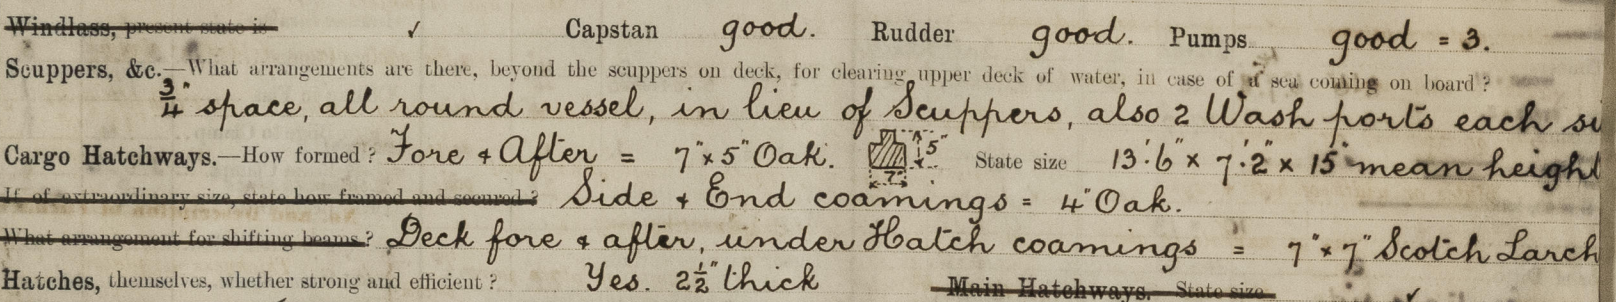 Windlass, present state is ✓ Capstan good. Rudder good. Pumps good = 3.
Scuppers, &c.—What arrangements are there, beyond the scuppers on deck, for clearing upper deck of water, in case of a sea coming on board?
3/4" space, all round vessel, in lieu of Scuppers, also 2 Wash ports each si
Cargo Hatchways.—How formed? Fore & After = 7" x 5" Oak. 5" 7" State size 13'.6" x 7'.2" x 15" mean height
If of extraordinary size, state how framed and secured? Side & End coamings = 4" Oak.
What arrangement for shifting beams? Deck fore & after, under Hatch coamings = 7" x 7" Scotch Larch
Hatches, themselves, whether strong and efficient? Yes. 2 1/2" thick Main Hatchways. State size ✓